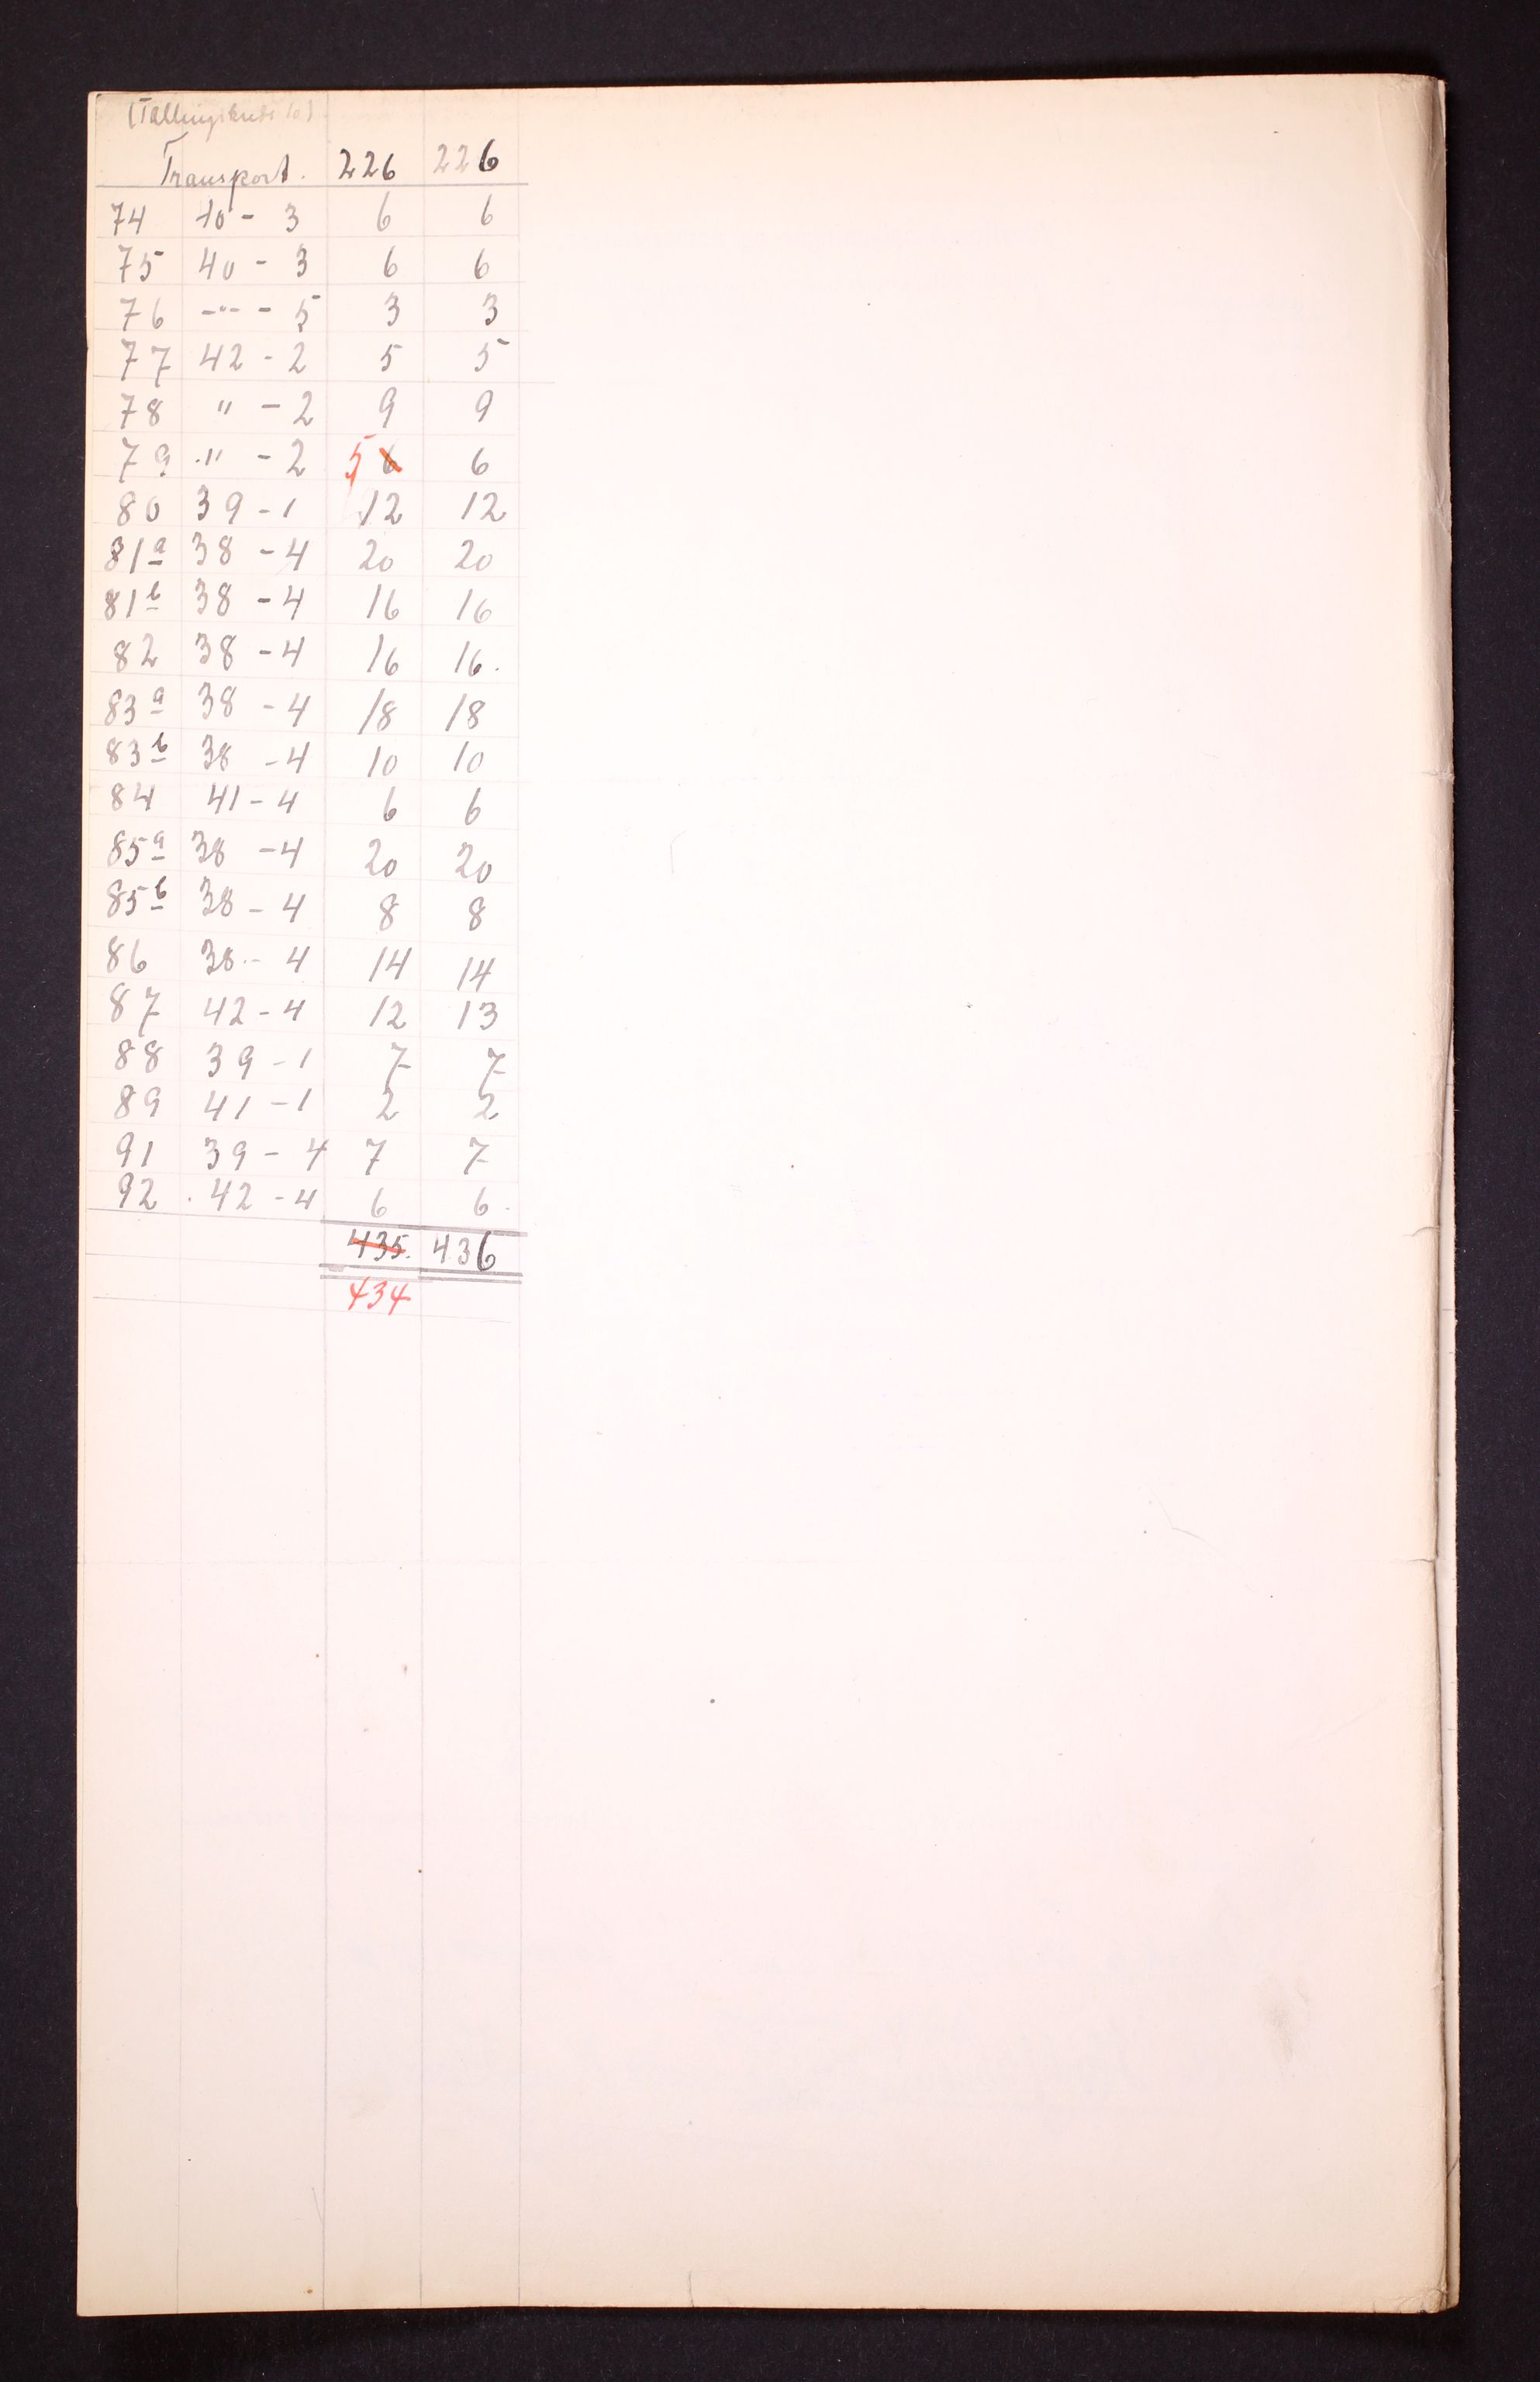 (Tellingskreds 10)
Transport. 226 226
74 40 - 3 6 6
75 40 - 3 6 6
76 -"- - 5 3 3
77 42 - 2 5 5
78 " - 2 9 9
79 " - 2 5 6 6
80 39 - 1 12 12
81a 38 - 4 20 20
81b 38 - 4 16 16
82 38 - 4 16 16.
83a 38 - 4 18 18
83b 38 - 4 10 10
84 41 - 4 6 6
85a 38 - 4 20 20
85b 38 - 4 8 8
86 38 - 4 14 14
87 42 - 4 12 13
88 39 - 1 7 7
89 41 - 1 2 2
91 39 - 4 7 7
92 . 42 - 4 6 6.
435. 436
434